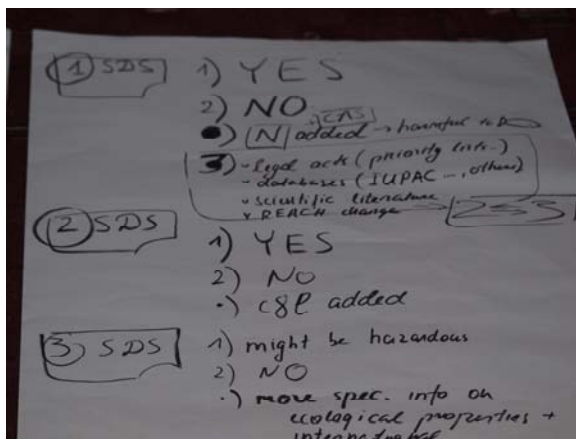 1 SDS
1) YES
2) NO
+ CAS
•) N added → harmful to
3) - Legal acts (priority lists..)
- databases (IUPAC ..., others)
- scientific literature
- REACH change
2 SDS
1) YES
2) NO
•) C&P added
3) SDS
1) might be hazardous
2) NO
•) more spec. info on
ecological properties +